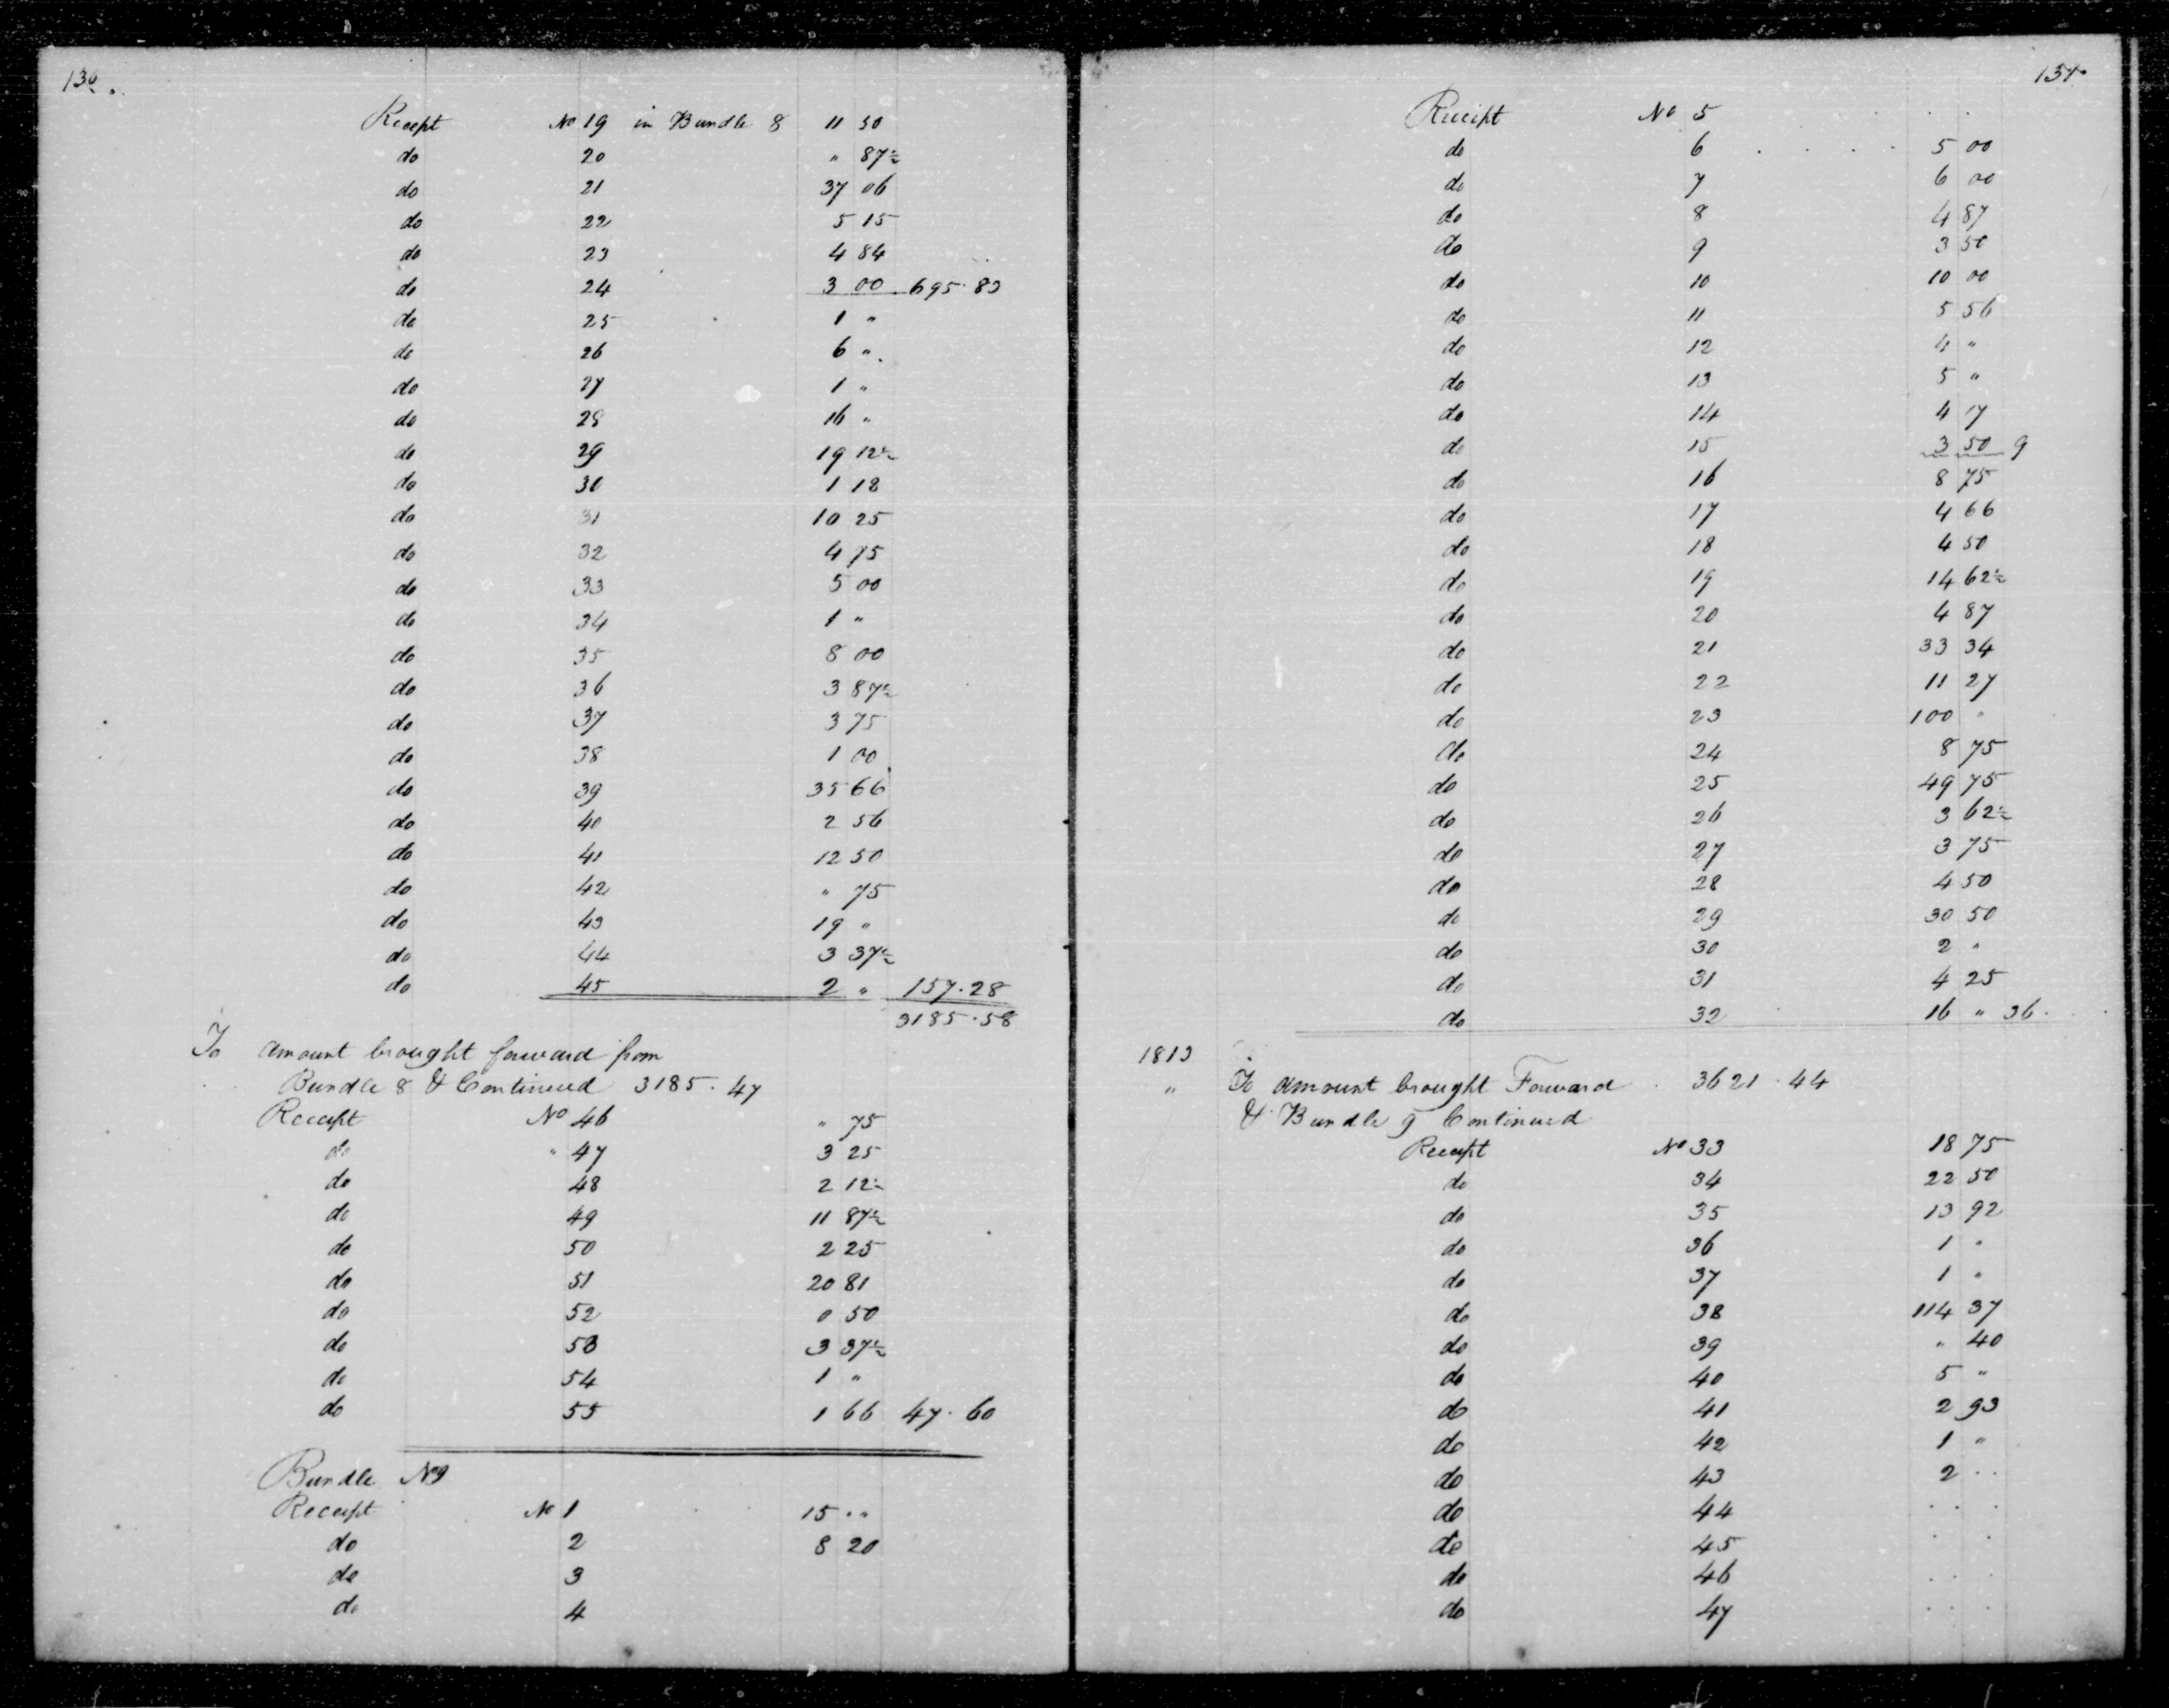 130.
Receipt No 19 in Bundle 8 11 50
do 20 " 87½
do 21 37 06
do 22 5 15
do 23 4 84
do 24 3 00 695.83
do 25 1 "
do 26 6 "
do 27 1 "
do 28 16 "
do 29 19 12½
do 30 1 18
do 31 10 25
do 32 4 75
do 33 5 00
do 34 1 "
do 35 8 00
do 36 3 87½
do 37 3 75
do 38 1 00
do 39 35 66
do 40 2 56
do 41 12 50
do 42 " 75
do 43 19 "
do 44 3 37½
do 45 2 " 157.28
3185.58
To amount brought forward from
Bundle 8 & Continued 3185.47
Receipt No 46 " 75
do " 47 3 25
do 48 2 12½
do 49 11 87½
do 50 2 25
do 51 20 81
do 52 0 50
do 53 3 37½
do 54 1 "
do 55 1 66 47.60
Bundle No 9
Receipt No 1 15 "
do 2 8 20
do 3
do 4
131.
Receipt No 5
do 6 5 00
do 7 6 00
do 8 4 87
do 9 3 50
do 10 10 00
do 11 5 56
do 12 4 "
do 13 5 "
do 14 4 17
do 15 3 50 9
do 16 8 75
do 17 4 66
do 18 4 50
do 19 14 62½
do 20 4 87
do 21 33 34
do 22 11 27
do 23 100 "
do 24 8 75
do 25 49 75
do 26 3 62½
do 27 3 75
do 28 4 50
do 29 30 50
do 30 2 "
do 31 4 25
do 32 16 " 36.
1813
" To amount brought Forward 3621.44
& Bundle 9 Continued
Receipt No 33 18 75
do 34 22 50
do 35 13 92
do 36 1 "
do 37 1 "
do 38 114 37
do 39 " 40
do 40 5 "
do 41 2 93
do 42 1 "
do 43 2 . .
do 44 . . .
do 45 . .
do 46 . . .
do 47 . . .